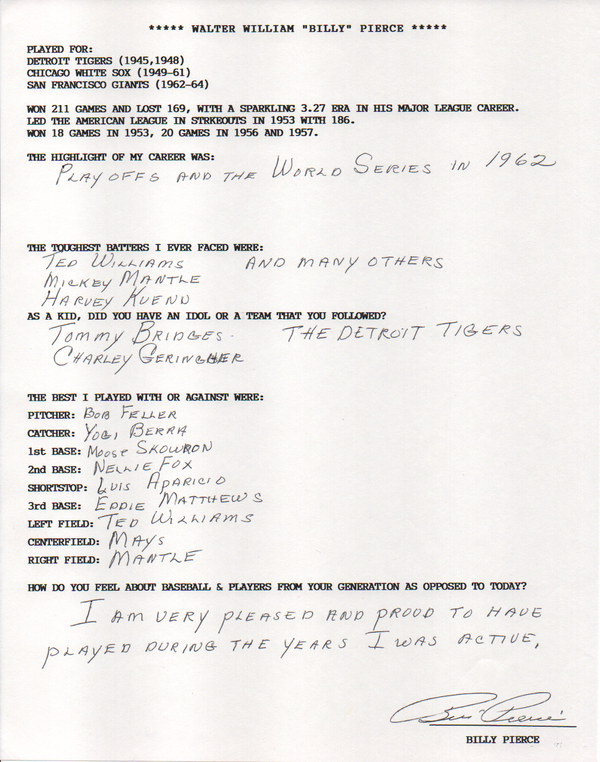 ***** WALTER WILLIAM "BILLY" PIERCE *****
PLAYED FOR:
DETROIT TIGERS (1945,1948)
CHICAGO WHITE SOX (1949-61)
SAN FRANCISCO GIANTS (1962-64)
WON 211 GAMES AND LOST 169, WITH A SPARKLING 3.27 ERA IN HIS MAJOR LEAGUE CAREER.
LED THE AMERICAN LEAGUE IN STRKEOUTS IN 1953 WITH 186.
WON 18 GAMES IN 1953, 20 GAMES IN 1956 AND 1957.
THE HIGHLIGHT OF MY CAREER WAS:
PLAYOFFS AND THE WORLD SERIES IN 1962
THE TOUGHEST BATTERS I EVER FACED WERE:
TED WILLIAMS AND MANY OTHERS
MICKEY MANTLE
HARVEY KUENN
AS A KID, DID YOU HAVE AN IDOL OR A TEAM THAT YOU FOLLOWED?
TOMMY BRIDGES - THE DETROIT TIGERS
CHARLEY GERINGHER
THE BEST I PLAYED WITH OR AGAINST WERE:
PITCHER: BOB FELLER
CATCHER: YOGI BERRA
1st BASE: MOOSE SKOWRON
2nd BASE: NELLIE FOX
SHORTSTOP: LUIS APARICIO
3rd BASE: EDDIE MATTHEWS
LEFT FIELD: TED WILLIAMS
CENTERFIELD: MAYS
RIGHT FIELD: MANTLE
HOW DO YOU FEEL ABOUT BASEBALL & PLAYERS FROM YOUR GENERATION AS OPPOSED TO TODAY?
I AM VERY PLEASED AND PROUD TO HAVE
PLAYED DURING THE YEARS I WAS ACTIVE.
Billy Pierce
BILLY PIERCE